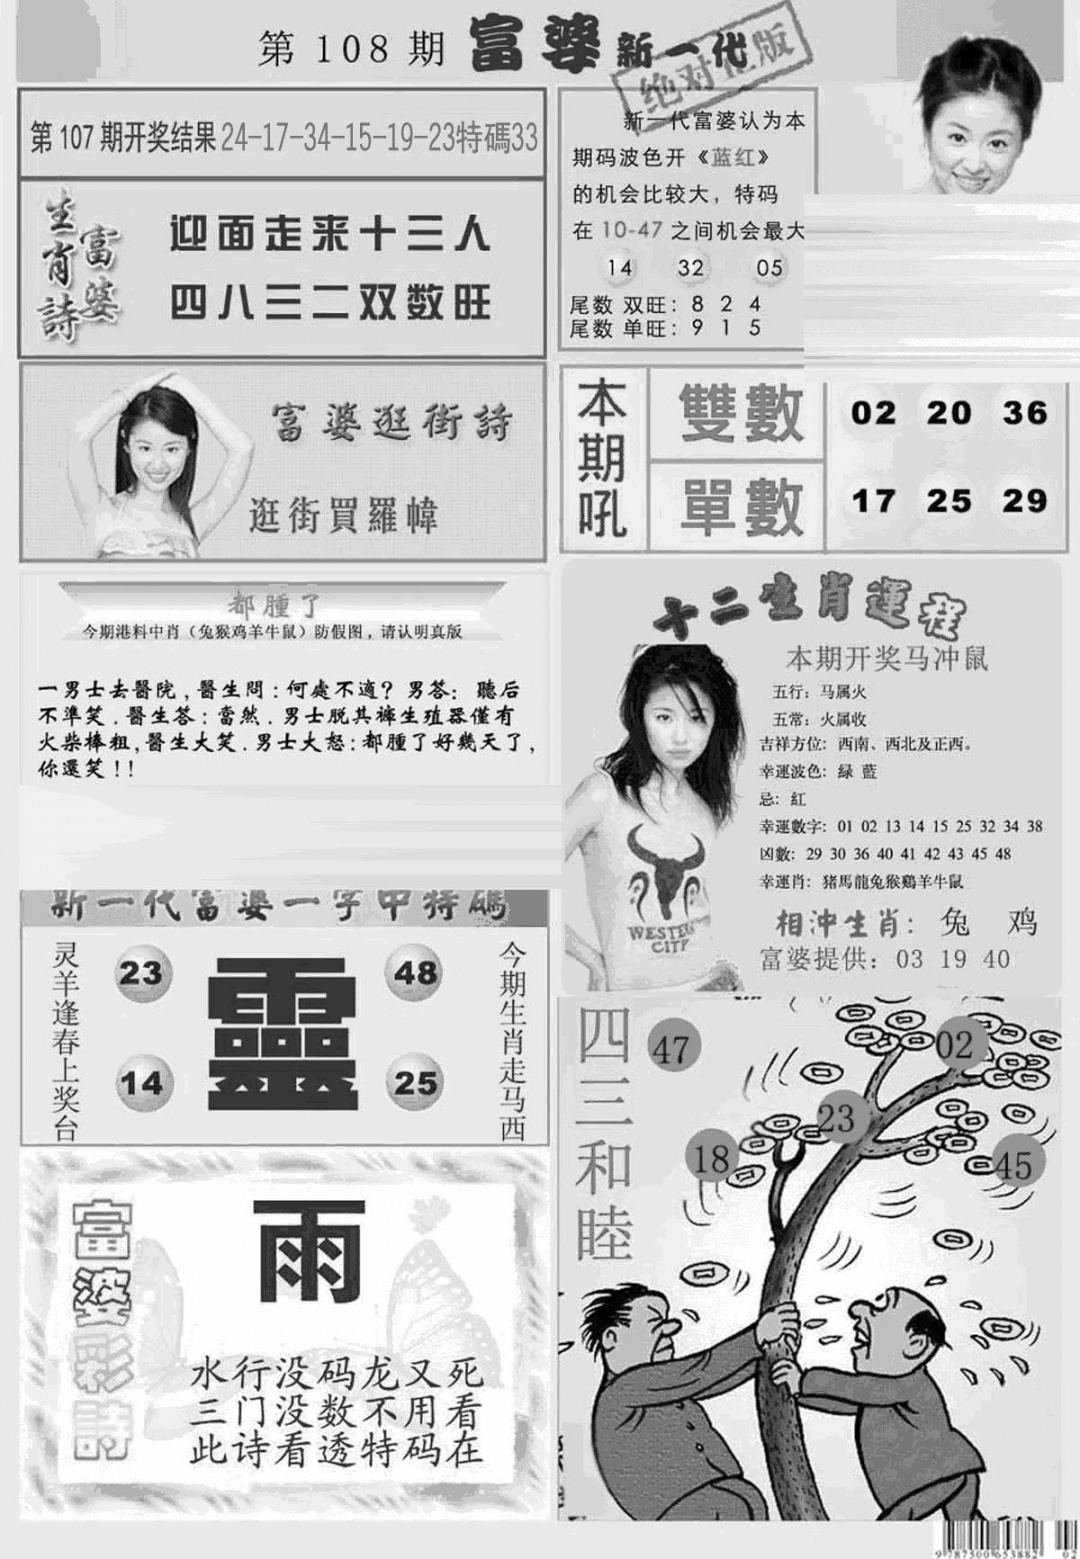 第 108 期 富婆新一代
绝对正版
第 107 期开奖结果24-17-34-15-19-23特碼33
富婆
生肖詩
迎面走来十三人
四八三二双数旺
新一代富婆认为本
期码波色开《蓝红》
的机会比较大，特码
在 10-47 之间机会最大
14 32 05
尾数 双旺：8 2 4
尾数 单旺：9 1 5
富婆逛街詩
逛街買羅幃
本期吼
雙數 02 20 36
單數 17 25 29
都腫了
今期港料中肖（兔猴鸡羊牛鼠）防假图，请认明真版
一男士去醫院,醫生問:何處不適? 男答: 聽后
不準笑.醫生答:當然.男士脱其褲生殖器僅有
火柴棒粗,醫生大笑.男士大怒:都腫了好幾天了,
你還笑!!
十二生肖運程
本期开奖马冲鼠
五行：马属火
五常：火属收
吉祥方位：西南、西北及正西。
幸運波色：緑 藍
忌：紅
幸運數字：01 02 13 14 15 25 32 34 38
凶數：29 30 36 40 41 42 43 45 48
幸運肖：猪馬龍兔猴鷄羊牛鼠
相沖生肖：兔 鸡
富婆提供：03 19 40
WESTERN
CITY
新一代富婆一字中特碼
灵羊逢春上奖台
23 48
靈
14 25
今期生肖走马西
四三和睦
47
02
23
18
45
富婆彩詩
雨
水行没码龙又死
三门没数不用看
此诗看透特码在
9787500653882 02